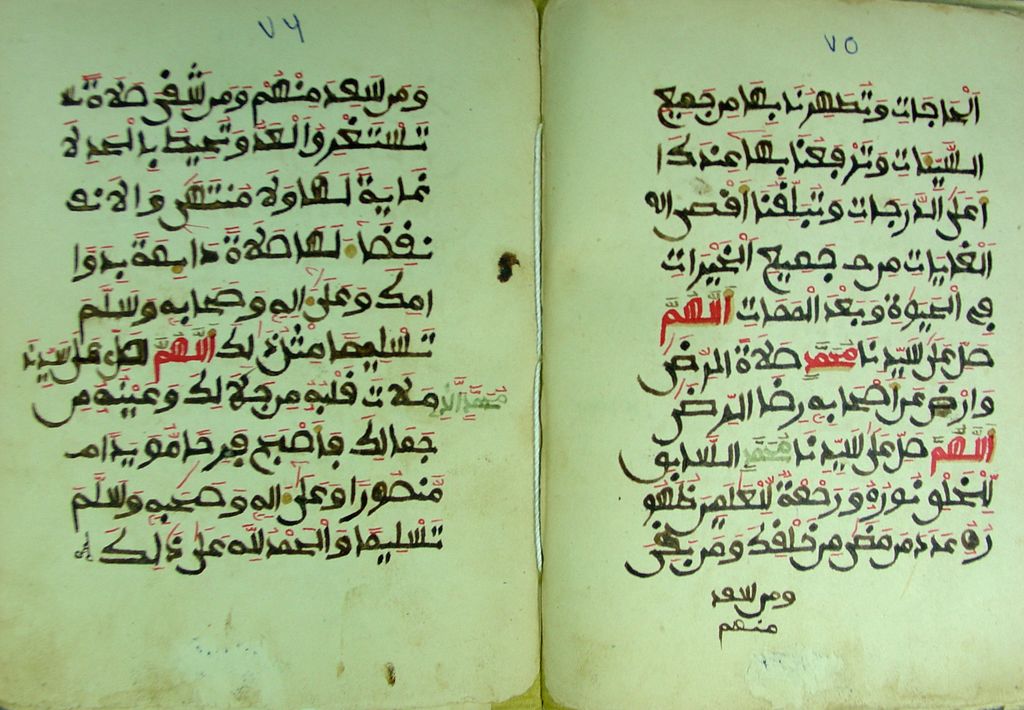 ٧٥
الحاجات وتطهرنا بها من جميع
السيئات وترفعنا بها عندك ا
اعلى الدرجات وتبلغنا اقصى
الغايات من جميع الخيرات
في الحيوة وبعد الممات اللهم
صل على سيدنا محمد صلاة الرضى
وارض عن اصحابه رضا الرضى
اللهم صل على سيدنا محمد السابق
للخلق نوره ورحمة للعلمين ظهو
ره عدد من مضى من خلقك ومن بقي
ومن سعد
منهم
٧٦
ومن سعد منهم ومن شقي صلاة
تستغرق العد وتحيط بالحد لا
غاية لها ولا منتهى ولا ان
نقضا لها صلاة دايمة بدوا
امك وعلى اله وصحابه وسلم
تسليما مثل ذلك اللهم صل على سيدنا
محمد الذي ملات قلبه من جلالك وعينه من
جمالك فاصبح فرحا مويدا م
منصورا وعلى اله وصحبه وسلم
تسليما والحمد لله على ذلك